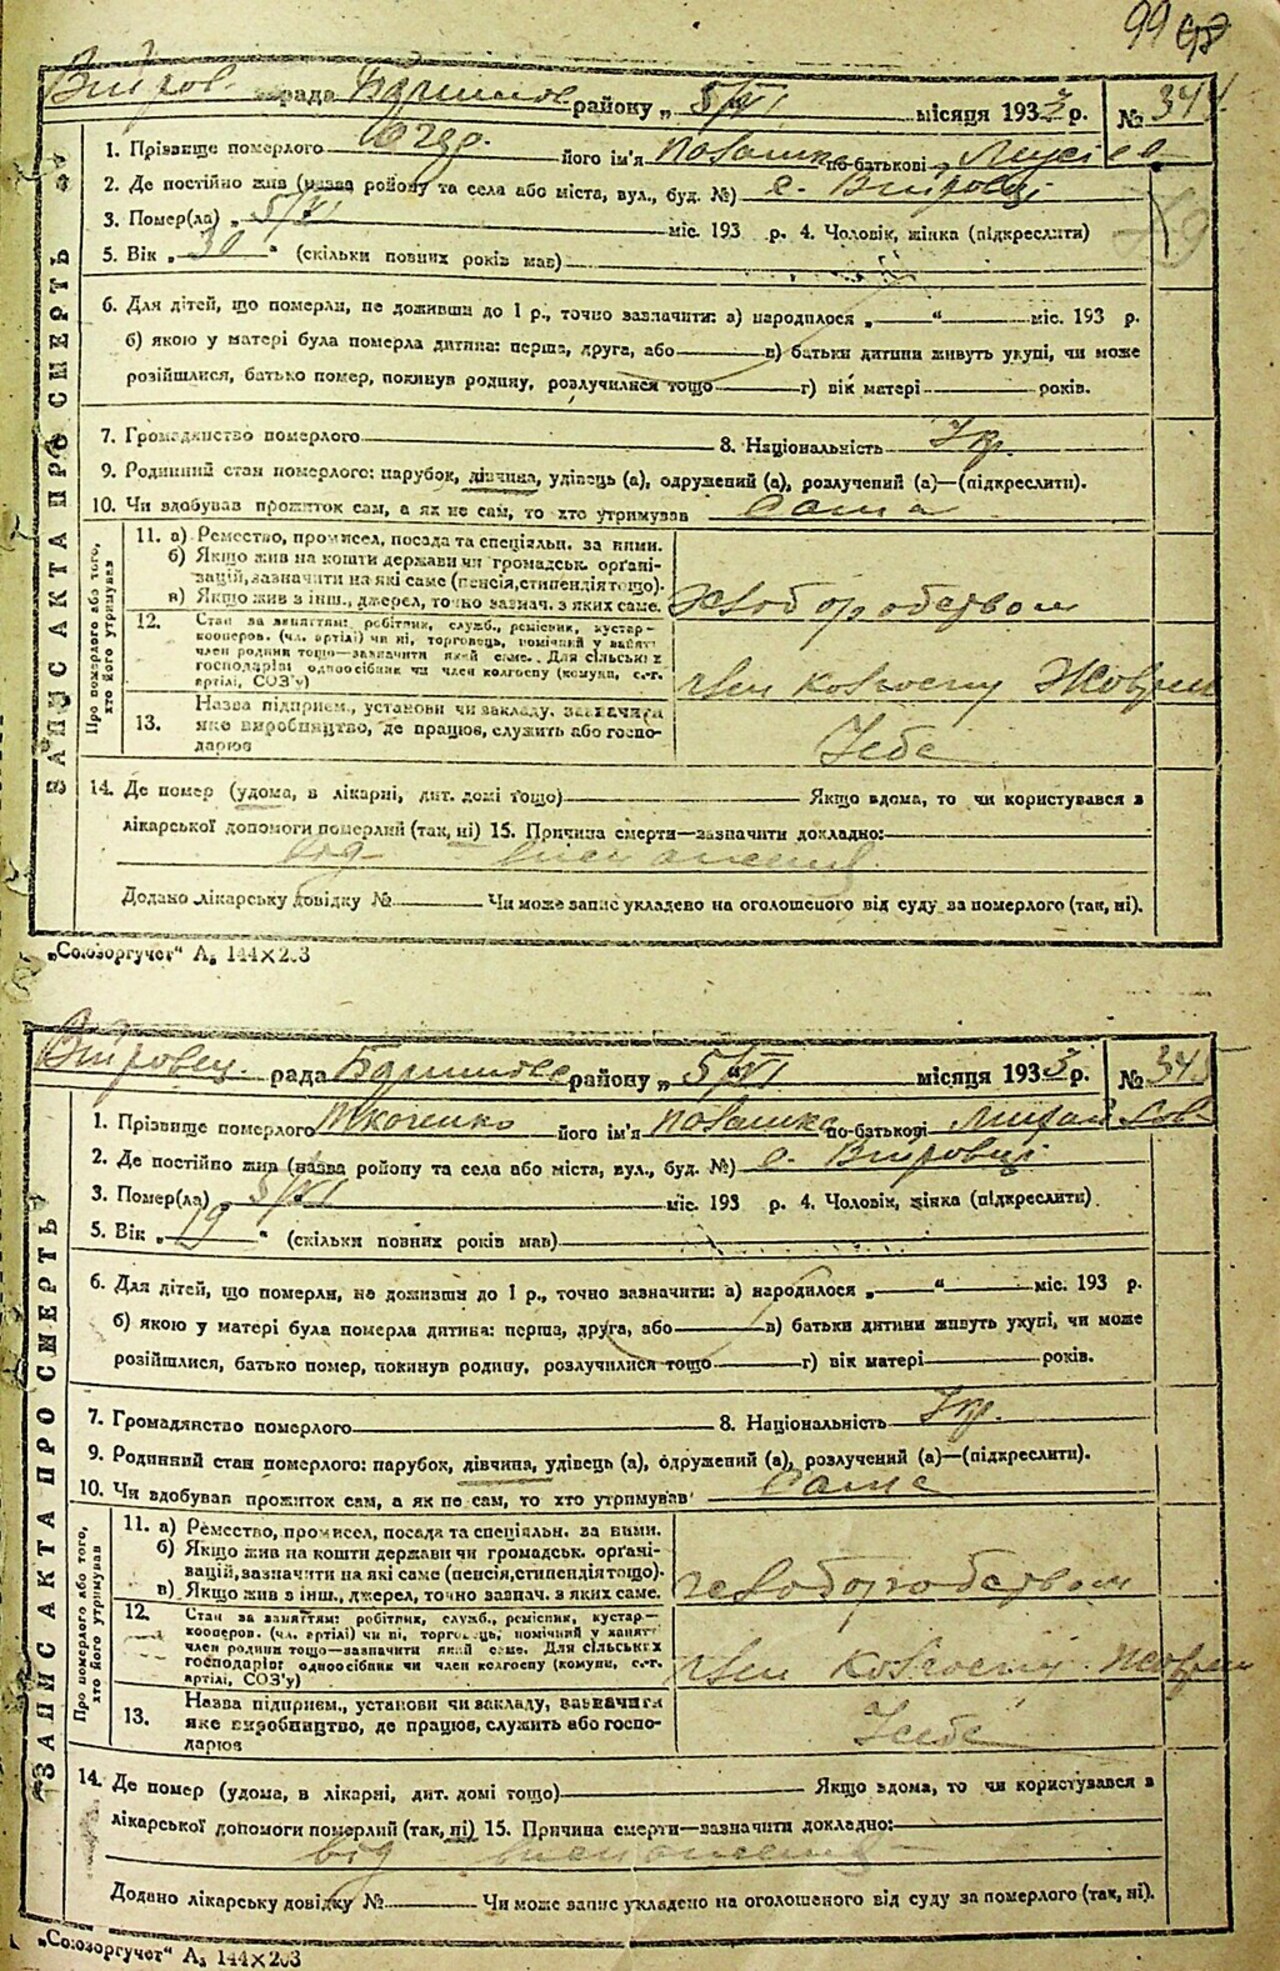 99
рада району „ 5/VI місяця 1933 р. № 344
1. Прізвище померлого його ім'я Повашка по-батькові
2. Де постійно жив (назва району та села або міста, вул., буд. №) с. Вийровці
3. Помер(ла) „ 5/VI міс. 193 р. 4. Чоловік, жінка (підкреслити)
5. Вік „ 30 “ (скільки повних років мав)
6. Для дітей, що померли, не доживши до 1 р., точно зазначити: а) народилося „ “ міс. 193 р.
б) якою у матері була померла дитина: перша, друга, або в) батьки дитини живуть укупі, чи може
розійшлися, батько помер, покинув родину, розлучилися тощо г) вік матері років.
7. Громадянство померлого 8. Національність Укр.
9. Родинний стан померлого: парубок, дівчина, удівець (а), одружений (а), розлучений (а)—(підкреслити).
10. Чи здобував прожиток сам, а як не сам, то хто утримував Сама
ЗАПИС АКТА ПРО СМЕРТЬ
Про померлого або того, хто його утримував
11. а) Ремество, промисел, посада та спеціяльн. за ними.
б) Якщо жив на кошти держави чи громадськ. органі-
зацій, зазначити на які саме (пенсія, стипендія тощо).
в) Якщо жив з інш., джерел, точно зазнач. з яких саме.
хлібороб
12. Стан за заняттям: робітник, служб., ремісник, кустар—
кооперов. (чл. артілі) чи ні, торговець, помічний у занятт
член родини тощо—зазначити який саме. Для сільських
господарів: одноосібник чи член колгоспу (комуни, с.-г.
артілі, СОЗ'у)
член колгоспу Жовтень
13. Назва підприєм., установи чи закладу, зазначити
яке виробництво, де працює, служить або госпо-
дарює
14. Де помер (удома, в лікарні, дит. домі тощо) Якщо вдома, то чи користувався з
лікарської допомоги померлий (так, ні) 15. Причина смерти—зазначити докладно:
від виснаження
Додано лікарську довідку № Чи може запис укладено на оголошеного від суду за померлого (так, ні).
„Союзоргучет“ А₅ 144×203
рада району „ 5/VI місяця 1933 р. № 345
1. Прізвище померлого Ткаченко його ім'я Повашка по-батькові
2. Де постійно жив (назва району та села або міста, вул., буд. №) с. Вийровці
3. Помер(ла) „ 5/VI міс. 193 р. 4. Чоловік, жінка (підкреслити)
5. Вік „ 19 “ (скільки повних років мав)
6. Для дітей, що померли, не доживши до 1 р., точно зазначити: а) народилося „ “ міс. 193 р.
б) якою у матері була померла дитина: перша, друга, або в) батьки дитини живуть укупі, чи може
розійшлися, батько помер, покинув родину, розлучилися тощо г) вік матері років.
7. Громадянство померлого 8. Національність Укр.
9. Родинний стан померлого: парубок, дівчина, удівець (а), одружений (а), розлучений (а)—(підкреслити).
10. Чи здобував прожиток сам, а як не сам, то хто утримував Сама
ЗАПИС АКТА ПРО СМЕРТЬ
Про померлого або того, хто його утримував
11. а) Ремество, промисел, посада та спеціяльн. за ними.
б) Якщо жив на кошти держави чи громадськ. органі-
зацій, зазначити на які саме (пенсія, стипендія тощо).
в) Якщо жив з інш., джерел, точно зазнач. з яких саме.
12. Стан за заняттям: робітник, служб., ремісник, кустар—
кооперов. (чл. артілі) чи ні, торговець, помічний у занятт
член родини тощо—зазначити який саме. Для сільських
господарів: одноосібник чи член колгоспу (комуни, с.-г.
артілі, СОЗ'у)
член колгоспу Жовтень
13. Назва підприєм., установи чи закладу, зазначити
яке виробництво, де працює, служить або госпо-
дарює
14. Де помер (удома, в лікарні, дит. домі тощо) Якщо вдома, то чи користувався з
лікарської допомоги померлий (так, ні) 15. Причина смерти—зазначити докладно:
від виснаження
Додано лікарську довідку № Чи може запис укладено на оголошеного від суду за померлого (так, ні).
„Союзоргучет“ А₅ 144×203